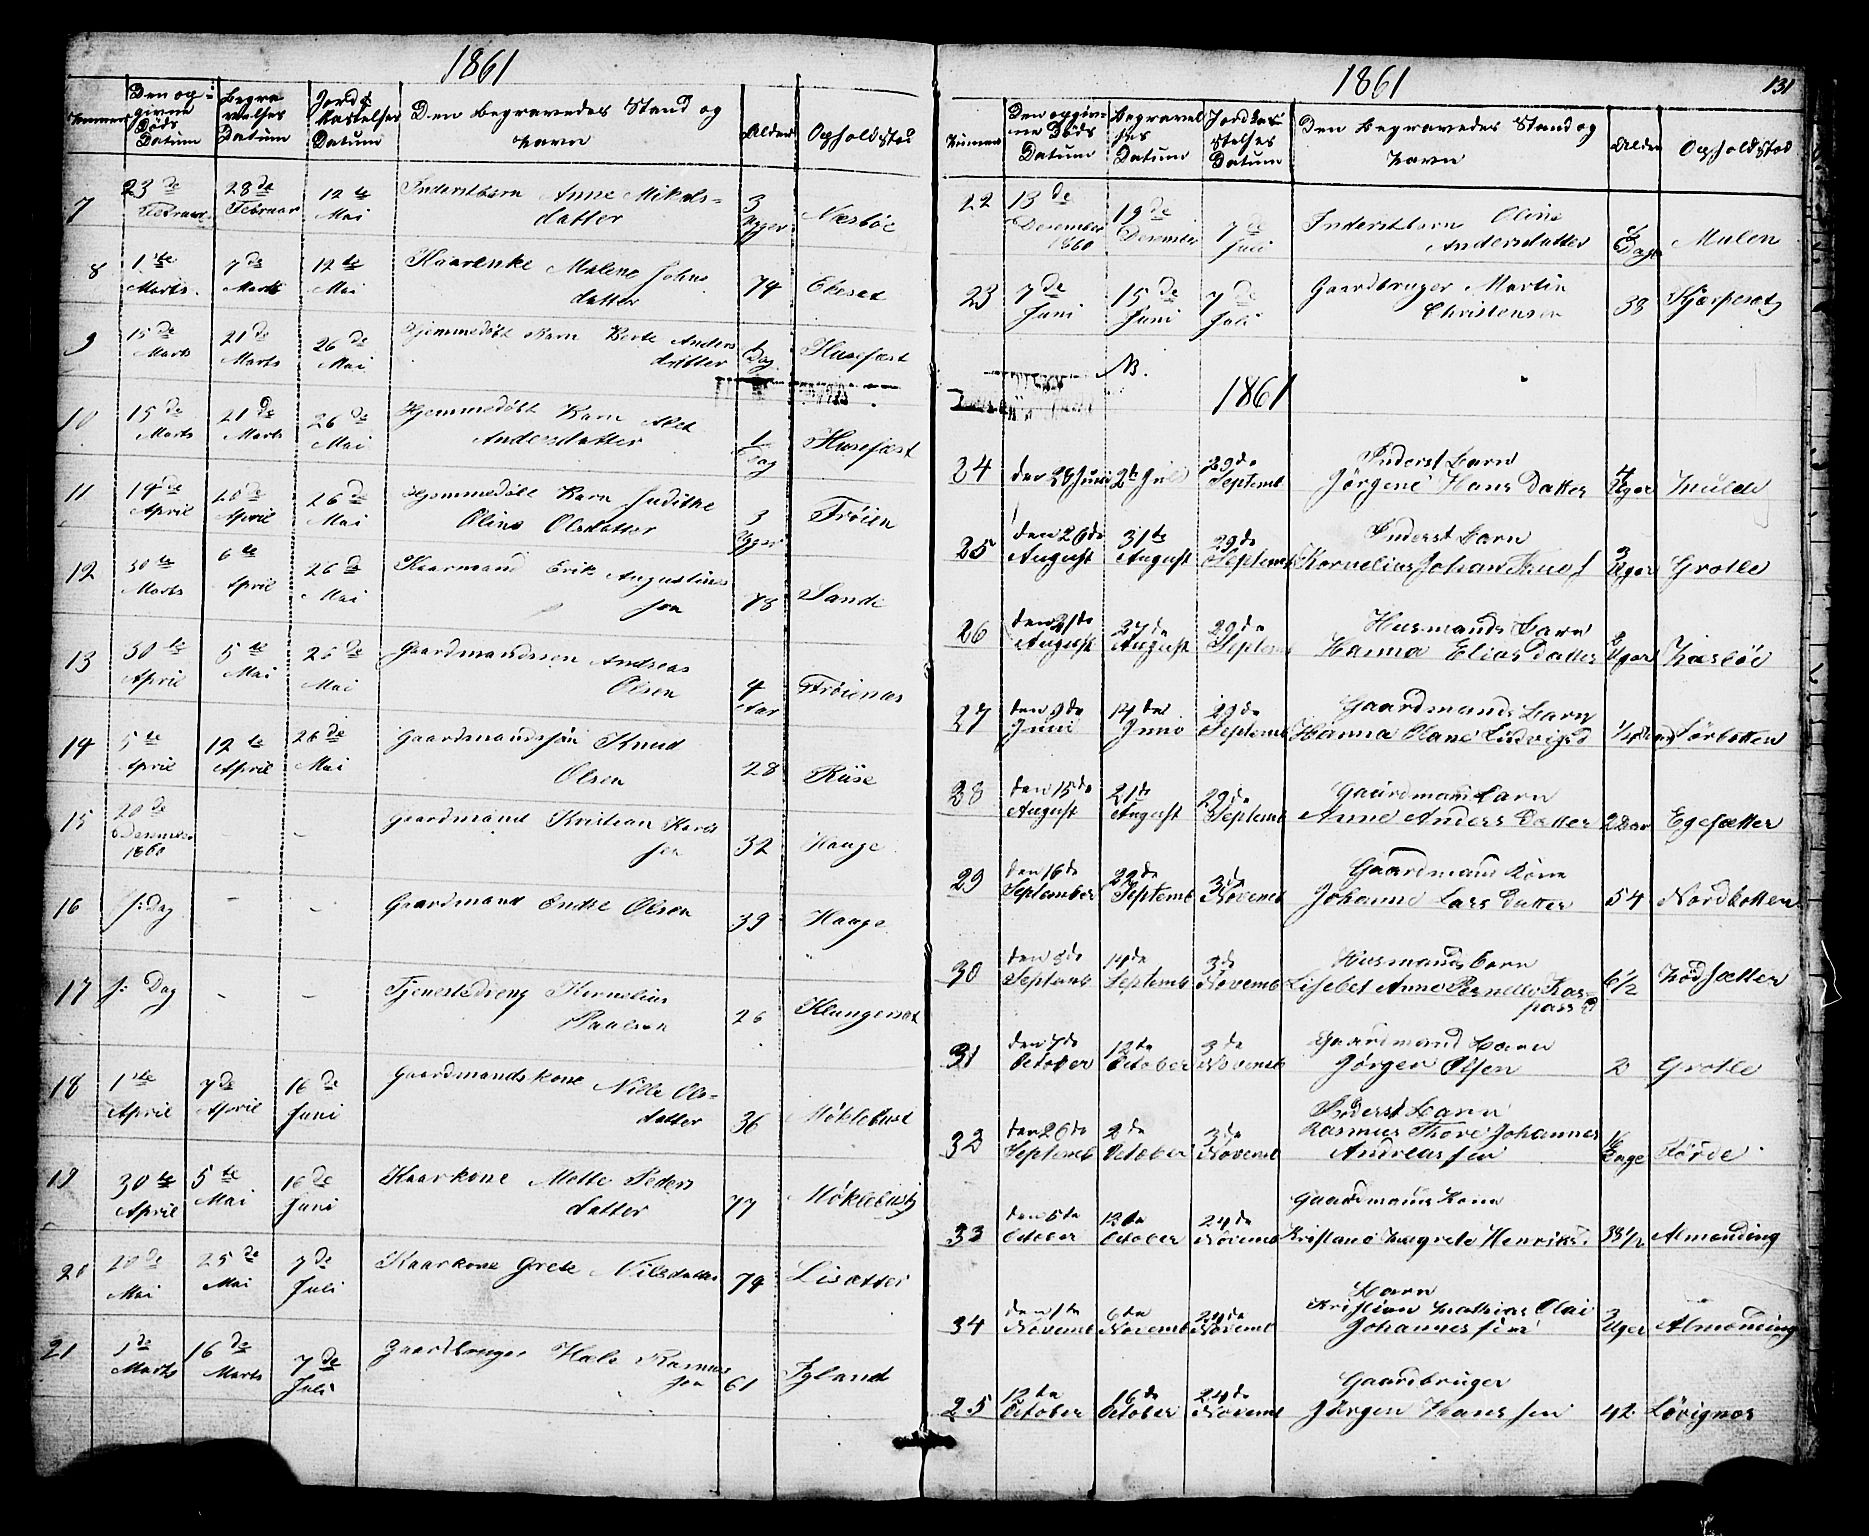 1861
Nummer
Den op-
givne
Døds
Datum
Begra
velses
Datum
Jordka
stelses
Datum
Den Begravedes Stand og
Navn
Alder
Opholdsted
7 23de Februar 28de Februar 12te Mai Inderstbarn Anne Mikals-
datter 3 Uger Næsbøe
8 1ste Marts. 7de Marts 12te Mai Kaarenke Malene Johns
datter 74 Ekeset
9 15de Marts 21de Marts 26de Mai Hjemmedøbt Barn Berte Anders
datter 1 Dag Husefæst
10 15de Marts 21de Marts 26de Mai Hjemmedøbt Barn
Andersdatter 1 Dag Husefæst
11 14de April 20de April 26de Mai Hjemmedøbt Barn Judithe
Oline Olsdatter 3 Uger Frøien
12 30te Marts 6te April 26de Mai Kaarmand Erik Augustinus
søn 78 Sande
13 30te April 5te Mai 26de Mai Gaardmandssøn Andreas
Olsen 4 Aar Frøienæs
14 5te April 12te April 26de Mai Gaardmandssøn Knud
Olsen 28 Riise
15 20de December 1860 - - Gaardmand Kristian
sen 32 Hauge
16 s: Dag - - Gaardmand Endre Olsen 39 Hauge
17 s: Dag - - Tjenestedreng Kornelius
Paulsen 26 Klungeset
18 1ste April 7de April 16de Juni Gaardmandskone Nille Ols-
datter 36 Møklebust
19 30te April 5te Mai 16de Juni Kaarkone Mette Peders
datter 77 Møklebust
20 20de Mai 25de Mai 7de Juli Kaarkone Grete Nilsdatter 74 Lisætter
21 1de Marts 16de Marts 7de Juli Gaardbruger Rasmus
søn 61 Igland
1861
131
Nummer
Den opgiv-
ne Døds
Datum
Begravel
ses
Datum
Jordka-
stelses
Datum
Den Begravedes Stand og
Navn
Alder
Opholdsted
22 13de December 1860 19de December 7de Juli Inderstbarn Oline
Andersdatter Dage Mulen
23 7de Juni 15de Juni 7de Juli Gaardbruger Martin
Christensen 38 Kjærpeset
N.
1861
24 den 28 Juni 2de Juli 29de Septemb Inderst Barn
Jørgene Hans Datter 4 Uger Mulde
25 den 26de August 31te August 29de Septemb Inderst Barn
Kornelius Johan 3 Uger Grotle
26 den 21de August 27de August 29de Septemb Husmands Barn
Hanna Elias Datter Uger Næsbøe
27 den 9de Juni 14de Juni 29de Septemb Gaardmands Barn
Hanna Olane Ludvigsd Sørbotten
28 den 15de August 21de August 29de Septemb Gaardmands Barn
Anne Anders Datter 22 aar Egesætter
29 den 16de September 22de Septemb 3de Novemb Gaardmand Kone
Johanne Lars Datter 54 Nordbotten
30 den 8de Septemb 14de Septemb 3de Novemb Husmands Barn
Lisebet Anne Pernelle Kas-
pars D 6 1/2 Rødsætter
31 den 7de October 12te October 3de Novemb Gaardmand Barn
Jørgen Olsen 2 Grotle
32 den 26de Septemb 2de October 3de Novemb Inderst Barn
Rasmus Thore Johannes
Andreassen 16 Dage Førde
33 den 5te October 12te October 24de Novemb Gaardmans Kone
Kristiane Magrete Henriks. 38 1/2 Almending
34 den 1ste Novemb 6te Novemb 24de Novemb Barn
Kristian Mathias Olai
Johannessen 3 Uger Almenning
25 12te October 16de October 24de Novemb Gaardbruger
Jørgen Hanssen 42 Lørignæs